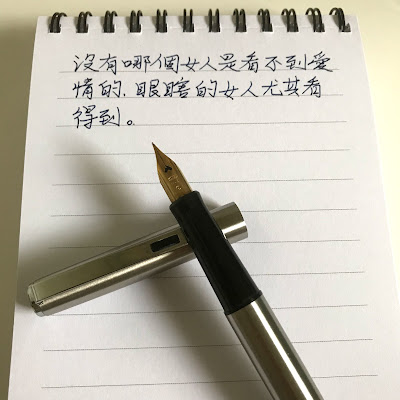 沒有哪個女人是看不到愛
情的，眼瞎的女人尤其看
得到。